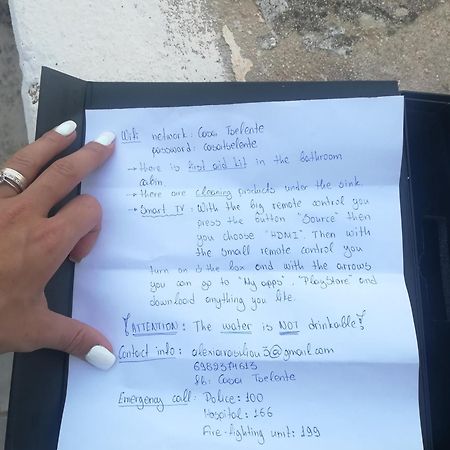 Wifi network: Casa Tselente
password: casatselente
→ there is first aid kit in the bathroom
cabin.
→ there are cleaning products under the sink.
→ Smart TV: With the big remote control you
press the button "Source" then
you choose "HDMI". Then with
the small remote control you
turn on the box and with the arrows
you can go to "My apps", "PlayStore" and
download anything you like.
! ATTENTION: The water is NOT drinkable!
Contact info: alexianasiliou3@gmail.com
6989374613
fb: Casa Tselente
Emergency call: Police: 100
Hospital: 166
Fire-fighting unit: 199